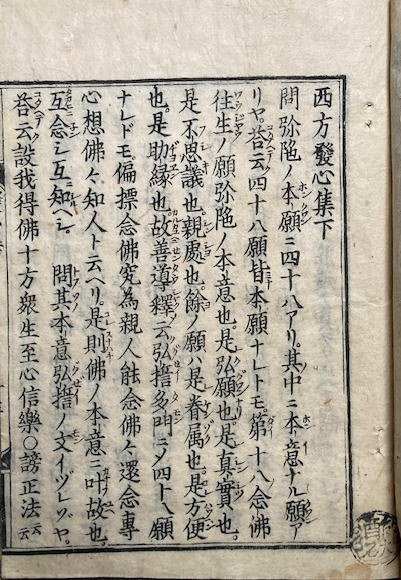 西方發心集下
問弥陀ノ本願ニ四十八アリ。其中ニ本意ナル願ア
リヤ。荅云四十八願皆本願ナレトモ。第十八念佛
往生ノ願弥陀ノ本意也。是弘願也。是真實也。
是不思議也。親處也。餘ノ願ハ是眷属也。是方便
也。是助縁也。故善導釋云弘誓多門ニノ四十八願
ナレドモ。偏標念佛究為親人能念佛々還念專
心想佛々知人ト云ヘリ。是則佛ノ本意ニ叶故也。
互念シ互知ヘシ 問其本意弘誓ノ文イヅレゾヤ。
荅云設我得佛十方衆生至心信樂〇謗正法云云